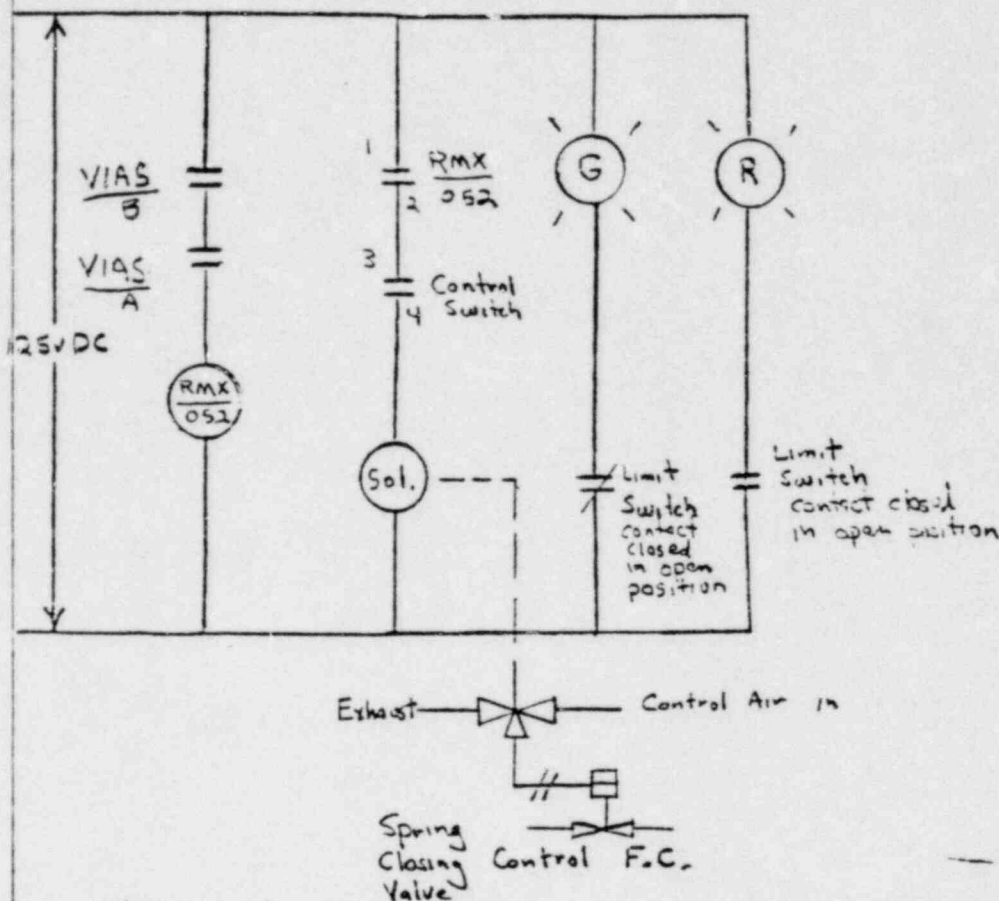 VIAS
B
VIAS
A
125V DC
RMX
052
1
RMX
052
2
3
Control
Switch
4
Sol.
G
R
Limit
Switch
contact
closed
in open
position
Limit
Switch
contact closed
in open position
Exhaust
Control Air in
Spring
Closing Control F.C.
Valve